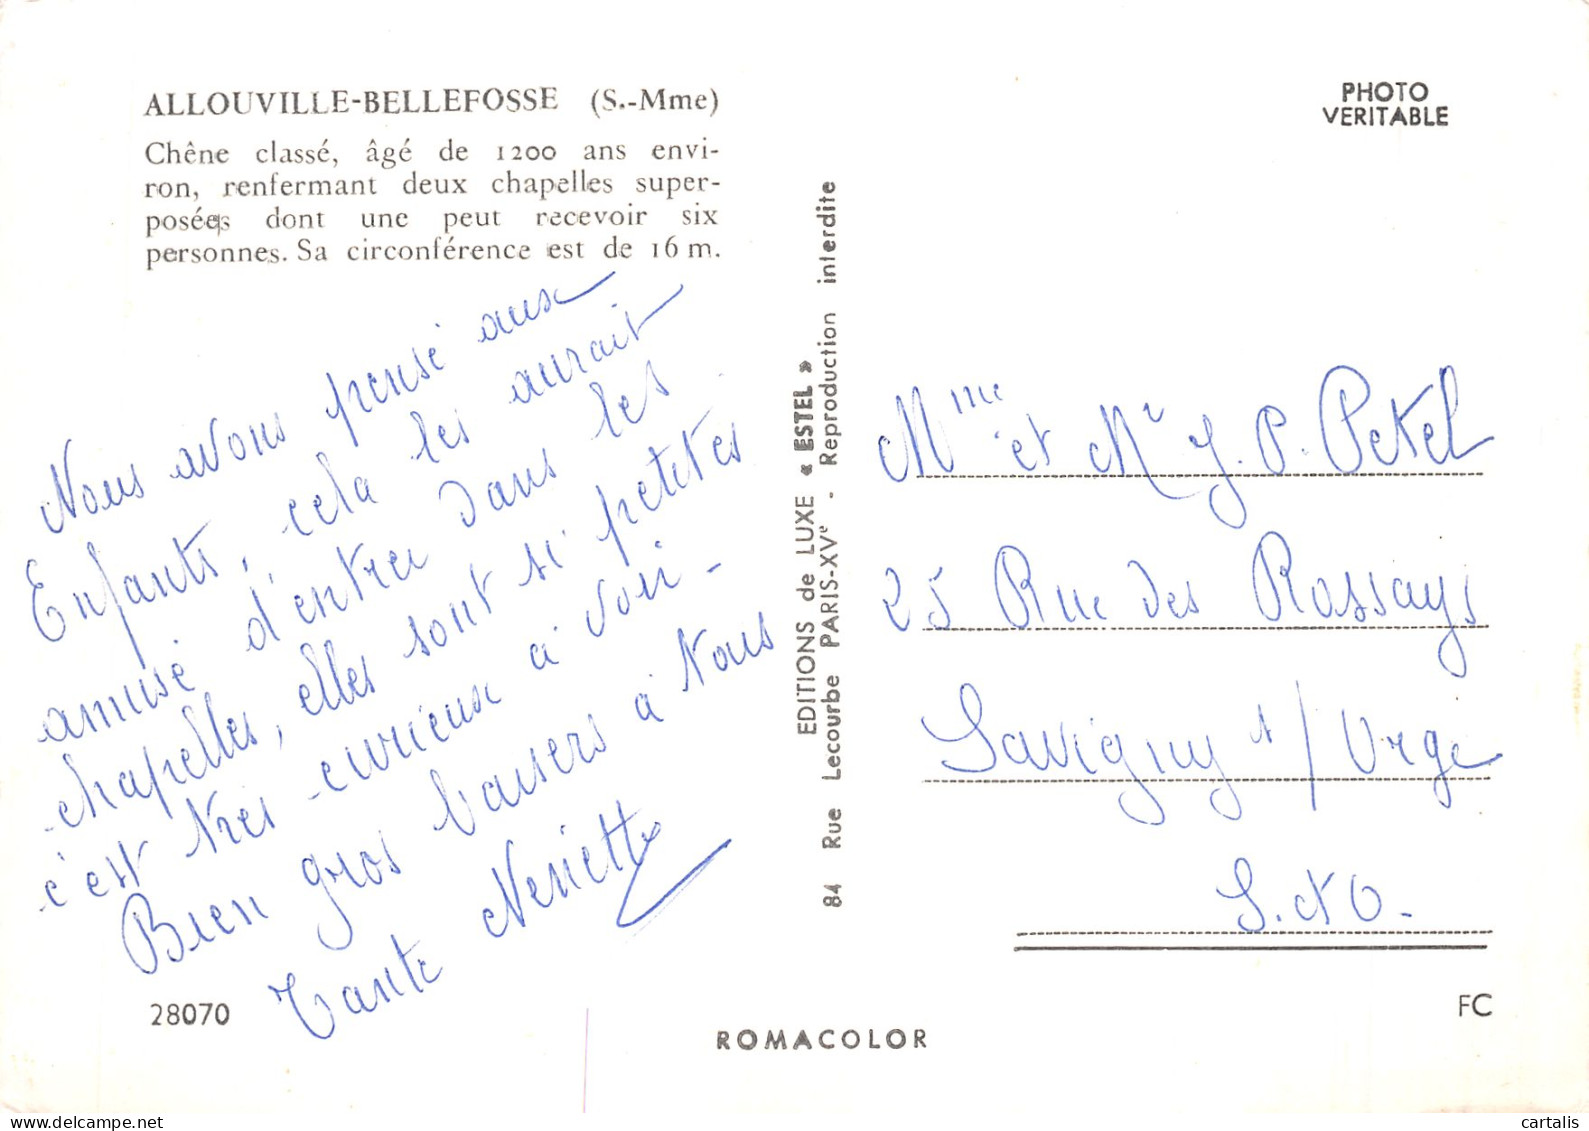 ALLOUVILLE-BELLEFOSSE (S.-Mme)
Chêne classé, âgé de 1200 ans envi-
ron, renfermant deux chapelles super-
posées dont une peut recevoir six
personnes. Sa circonférence est de 16 m.
Nous avons pensé aux
Enfants, cela les aurait
amusé d'entrer dans les
chapelles, elles sont si petites
c'est très curieux à voir -
Bien gros baisers à Nous
Tante
28070
EDITIONS de LUXE « ESTEL »
84 Rue Lecourbe PARIS-XVe - Reproduction interdite
ROMACOLOR
PHOTO
VERITABLE
Mme et Mr J. P. Petel
25 Rue des Rossays
Savigny s/ Orge
S. et O.
FC
cartalis